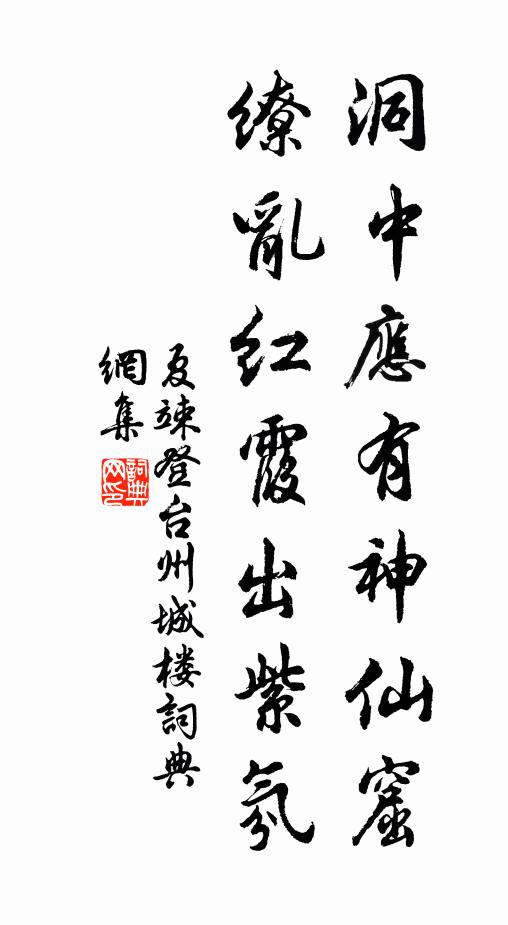 洞中應有神仙窟
繚亂紅霞出紫氛
夏竦登台州城楼詞典
網集
詞典
网印